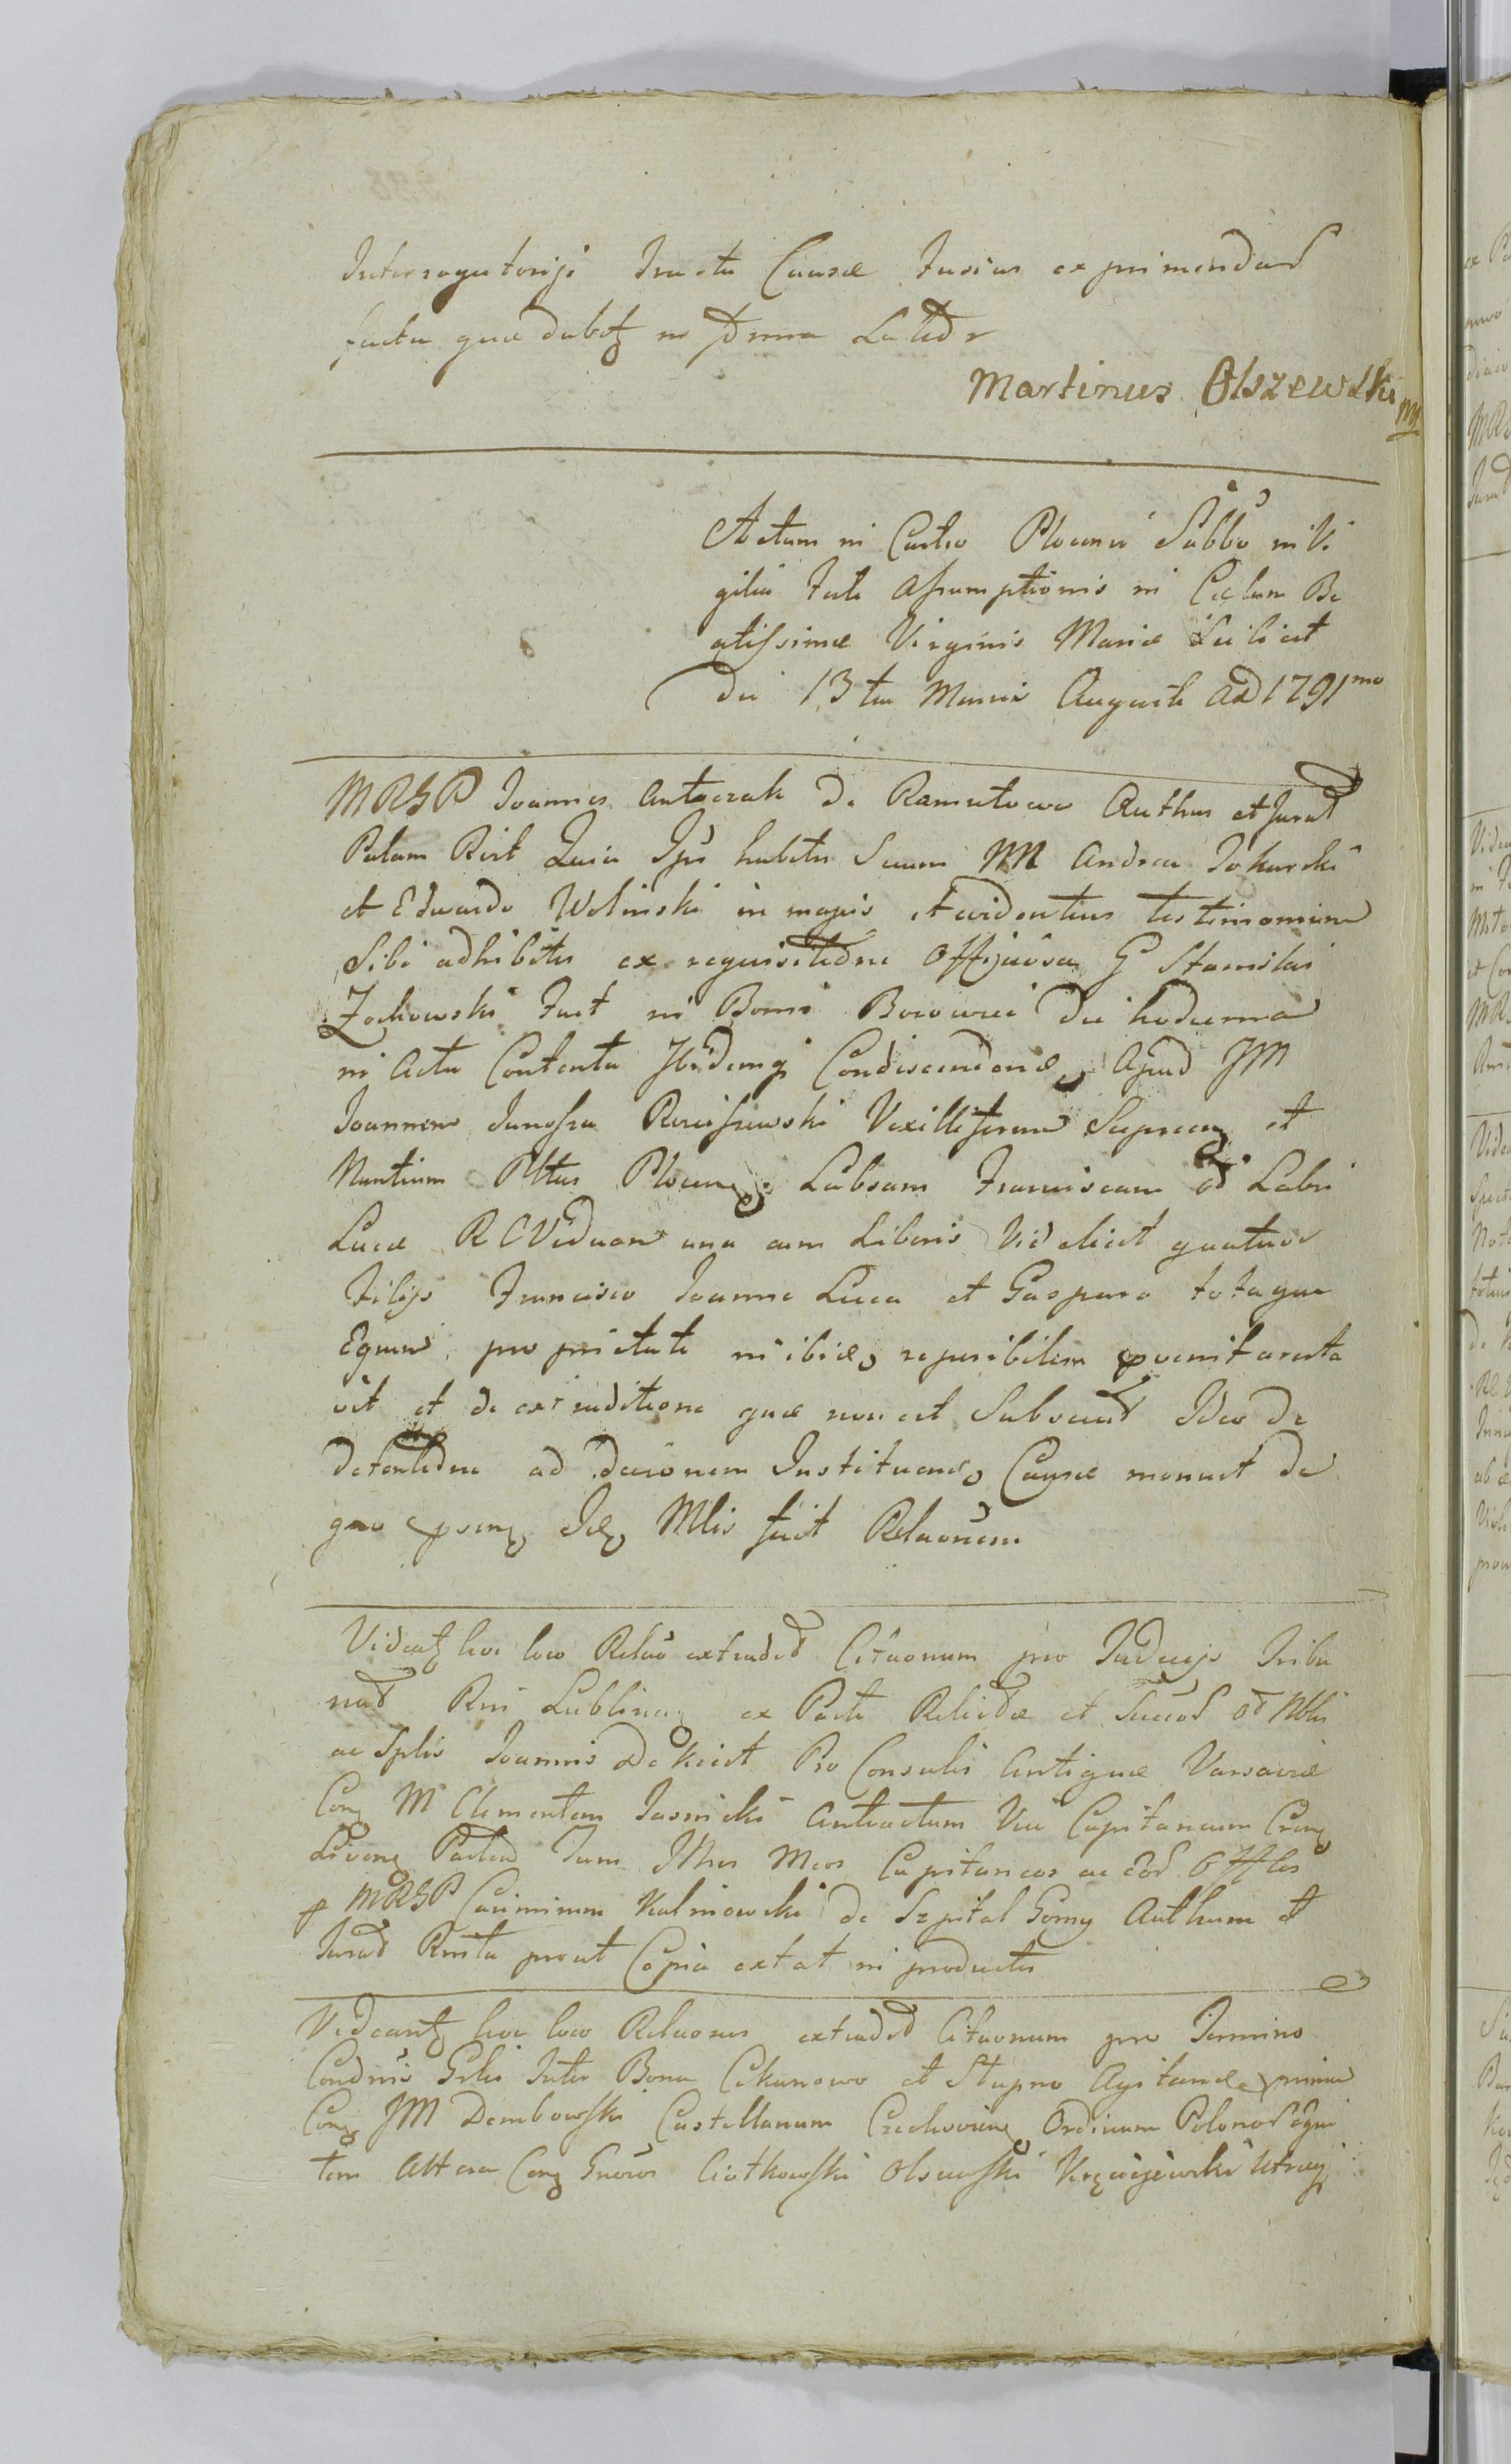 Interrogatorijs Tractu Causæ fusius exprimendas
facta quæ dubtz in forma Latior
Martinus Olszewski mp
Actum in Castro Plocensi Sabbo in Vi
gilia Festi Assumptionis in Cælum Be
atissimæ Virginis Mariæ Scilicet
die 13tia Mensis Augusti AD 1791mo
MRGP Joannes Antoczak de Ramutowo Authus et Jurat
Palam Rcit Quia Ipse habitis Secum NN Andrea Tokarski
et Eduardo Wolinski in magis evidentius testimonium
Sibi adhibitis ex requisitione Officiosa G Stanislai
Zochowski fuit in Bonis die hodierna
in Actu Contenta Ibidemq Condiscendend, Apud JM
Joannem Junosza Rosciszewski Vexilliferum Sieprcen et
Nuntium Pltus Plocen Labsam Franciscam od Labri
Lucæ R C Viduam una cum Liberis Videlicet quatuor
Filijs Francisco Joanne Luca et Gasparo totaque
Eorum proprietate in ibid, reperibilem venit aresta
vit et de extraditione quæ non est Subsecut Ideo de
detentione ad decionem Instituend, Causæ monuit de
quo psens Idq Mlis fecit Relaonem
Videatz hoc loco Relao extradit Citaonum pro Judicijs Tribu
nal Rni Lublinen ex Parte Relictæ et Succes od Nblis
ac Splis Joannis Dekiert Pro Consulis Antiquæ Varsaviæ
Con M Clementem Jasnicki Antoactum Vice Capitaneum Cren
Livens Patrat Tum Illres Mcos Capitaneos ac eod Offles
p MRGP Casimirum Kalinowski de Szpital Gorny Authum et
Jurat Rnita prout Copia extat in productis
Videantz hoc loco Relaones extradit Citaonum pro Termino
Condnis Gnlis Inter Bona Cekanowo et Stupno Agitandæ prima
Con JM Dembowski Castellanum Czechovien, Ordinum Polonor Equi
tem Altera Con Gnosos Ciotkowski Olszewski Krzciejewski utraq